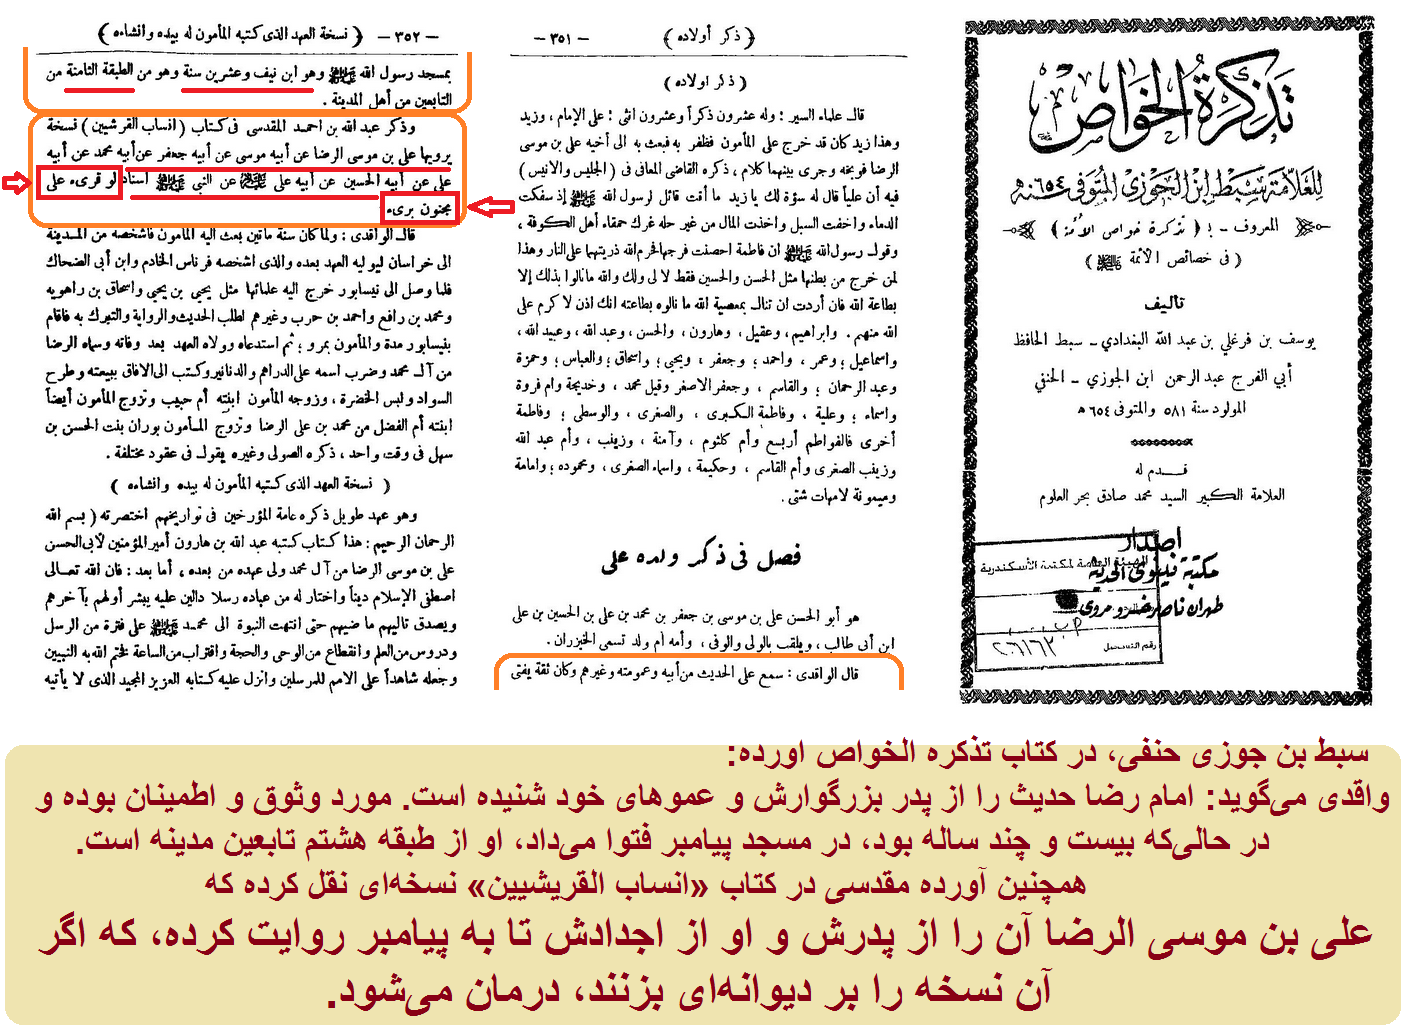 تذكرة الخواص
للعلامة سبط ابن الجوزي المتوفى سنة ٦٥٤ ه
المعروف - ب ( تذكرة خواص الأمة )
( في خصائص الأئمة )
تاليف
يوسف بن فرغلي بن عبد الله البغدادي - سبط الحافظ
أبي الفرج عبد الرحمن ابن الجوزي - الحنفي
المولود سنة ٥٨١ والمتوفى ٦٥٤ ه
قدم له
العلامة الكبير السيد محمد صادق بحر العلوم
اصدار
مكتبة نينوى الحديثة
طهران ناصر خسرو مروى
الهيئة العامة لمكتبة الأسكندرية
رقم التسجيل
( ذكر أولاده ) - ٣٥١ -
( ذكر اولاده )
قال علماء السير : وله عشرون ذكراً وعشرون انثى : على الإمام ، وزيد
وهذا زيد كان قد خرج على المأمون فظفر به فبعث به الى أخيه على بن موسى
الرضا فوبخه وجرى بينهما كلام ، ذكره القاضى المعافى فى ( الجليس والانيس )
فيه أن علياً قال له سؤة لك يا زيد ما أنت قائل لرسول الله إذ سفكت
الدماء واخفت السبل واخذت المال من غير حله غرك حمقاء أهل الكوفة ،
وقول رسول الله ان فاطمة احصنت فرجها فحرم الله ذريتها على النار وهذا
لمن خرج من بطنها مثل الحسن والحسين فقط لا لى ولك والله ما نالوا بذلك إلا
بطاعة الله فان أردت ان تنال بمعصية الله ما نالوه بطاعته انك اذن لا كرم على
الله منهم . وابراهيم ، وعقيل ، وهارون ، والحسن ، وعبد الله ، وعبيد الله ،
واسماعيل ؛ وعمر ، واحمد ؛ وجعفر ، ويحيى ؛ واسحاق ؛ والعباس ؛ وحمزة
وعبد الرحمان ؛ والقاسم ، وجعفر الاصغر وقيل محمد ، وخديجة وام فروة
واسماء ؛ وعلية ، وفاطمة الكبرى ، والصغرى ، والوسطى ؛ وفاطمة
أخرى فالفواطم أربع وأم كلثوم ، وآمنة ، وزينب ، وأم عبد الله
وزينب الصغرى وأم القاسم ، وحكيمة ، واسماء الصغرى ، ومحموده ؛ وامامة
وميمونة لامهات شتى .
فصل فى ذكر ولده على
هو أبو الحسن على بن موسى بن جعفر بن محمد بن على بن الحسين بن على
ابن أبى طالب ، ويلقب بالولى والوفى ، وأمه ام ولد تسمى الخيزران .
قال الواقدى : سمع على الحديث من أبيه وعمومته وغيرهم وكان ثقة يفتى
- ٣٥٢ - ( نسخة العهد الذى كتبه المأمون له بيده وانشاءه )
بمسجد رسول الله وهو ابن نيف وعشرين سنة وهو من الطبقة الثامنة من
التابعين من أهل المدينة .
وذكر عبد الله بن احمد المقدسى فى كتاب ( انساب القرشيين ) نسخة
يرويها على بن موسى الرضا عن أبيه موسى عن أبيه جعفر عن أبيه محمد عن أبيه
على عن أبيه الحسين عن أبيه على عن النبى اسناد لو قرىء على
مجنون برىء
قال الواقدى : ولما كان سنة ماتين بعث اليه المأمون فاشخصه من المدينة
الى خراسان ليوليه العهد بعده والذى اشخصه فرناس الخادم وابن أبى الضحاك
فلما وصل الى نيسابور خرج اليه علمائها مثل يحيى بن يحيى واسحاق بن راهويه
ومحمد بن رافع واحمد بن حرب وغيرهم لطلب الحديث والرواية والتبرك به فاقام
بنيسابور مدة والمأمون بمرو ؛ ثم استدعاه وولاه العهد بعد وفاته وسماه الرضا
من آل محمد وضرب اسمه على الدراهم والدنانير وكتب الى الآفاق ببيعته وطرح
السواد ولبس الخضرة ، وزوجه المأمون ابنته أم حبيب وتزوج المأمون أيضاً
ابنته أم الفضل من محمد بن على الرضا وتزوج المأمون بوران بنت الحسن بن
سهل فى وقت واحد ، ذكره الصولى وغيره يقول فى عقود مختلفة .
( نسخة العهد الذى كتبه المأمون له بيده وانشاءه )
وهو عهد طويل ذكره عامة المؤرخين فى تواريخهم اختصرته ( بسم الله
الرحمان الرحيم : هذا كتاب كتبه عبد الله بن هارون أمير المؤمنين لأبى الحسن
على بن موسى الرضا من آل محمد ولى عهده من بعده ، أما بعد : فان الله تعالى
اصطفى الإسلام ديناً واختار له من عباده رسلا دالين عليه يبشر أولهم بآخرهم
ويصدق تاليهم ماضيهم حتى انتهت النبوة الى محمد على فترة من الرسل
ودروس من العلم وانقطاع من الوحى والحجة واقتراب من الساعة فختم الله به النبيين
وجعله شاهداً على الامم للمرسلين وانزل عليه كتابه العزيز المجيد الذى لا يأتيه
سبط بن جوزی حنفی، در کتاب تذکره الخواص اورده:
واقدی می‌گوید: امام رضا حدیث را از پدر بزرگوارش و عموهای خود شنیده است. مورد وثوق و اطمینان بوده و
در حالی‌که بیست و چند ساله بود، در مسجد پیامبر فتوا می‌داد، او از طبقه هشتم تابعین مدینه است.
همچنین آورده مقدسی در کتاب «انساب القریشیین» نسخه‌ای نقل کرده که
علی بن موسی الرضا آن را از پدرش و او از اجدادش تا به پیامبر روایت کرده، که اگر
آن نسخه را بر دیوانه‌ای بزنند، درمان می‌شود.